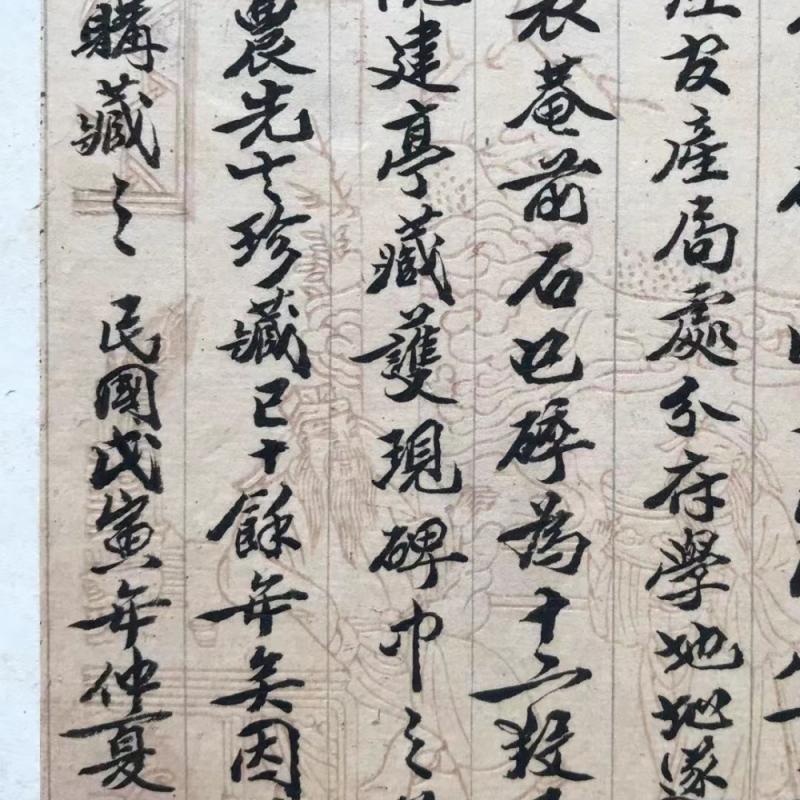 官產局處分存學地地遂
菴前石已碎為十六段
建亭藏護現碑巾之
農先生珍藏已十餘年矣因
購藏之 民國戊寅年仲夏